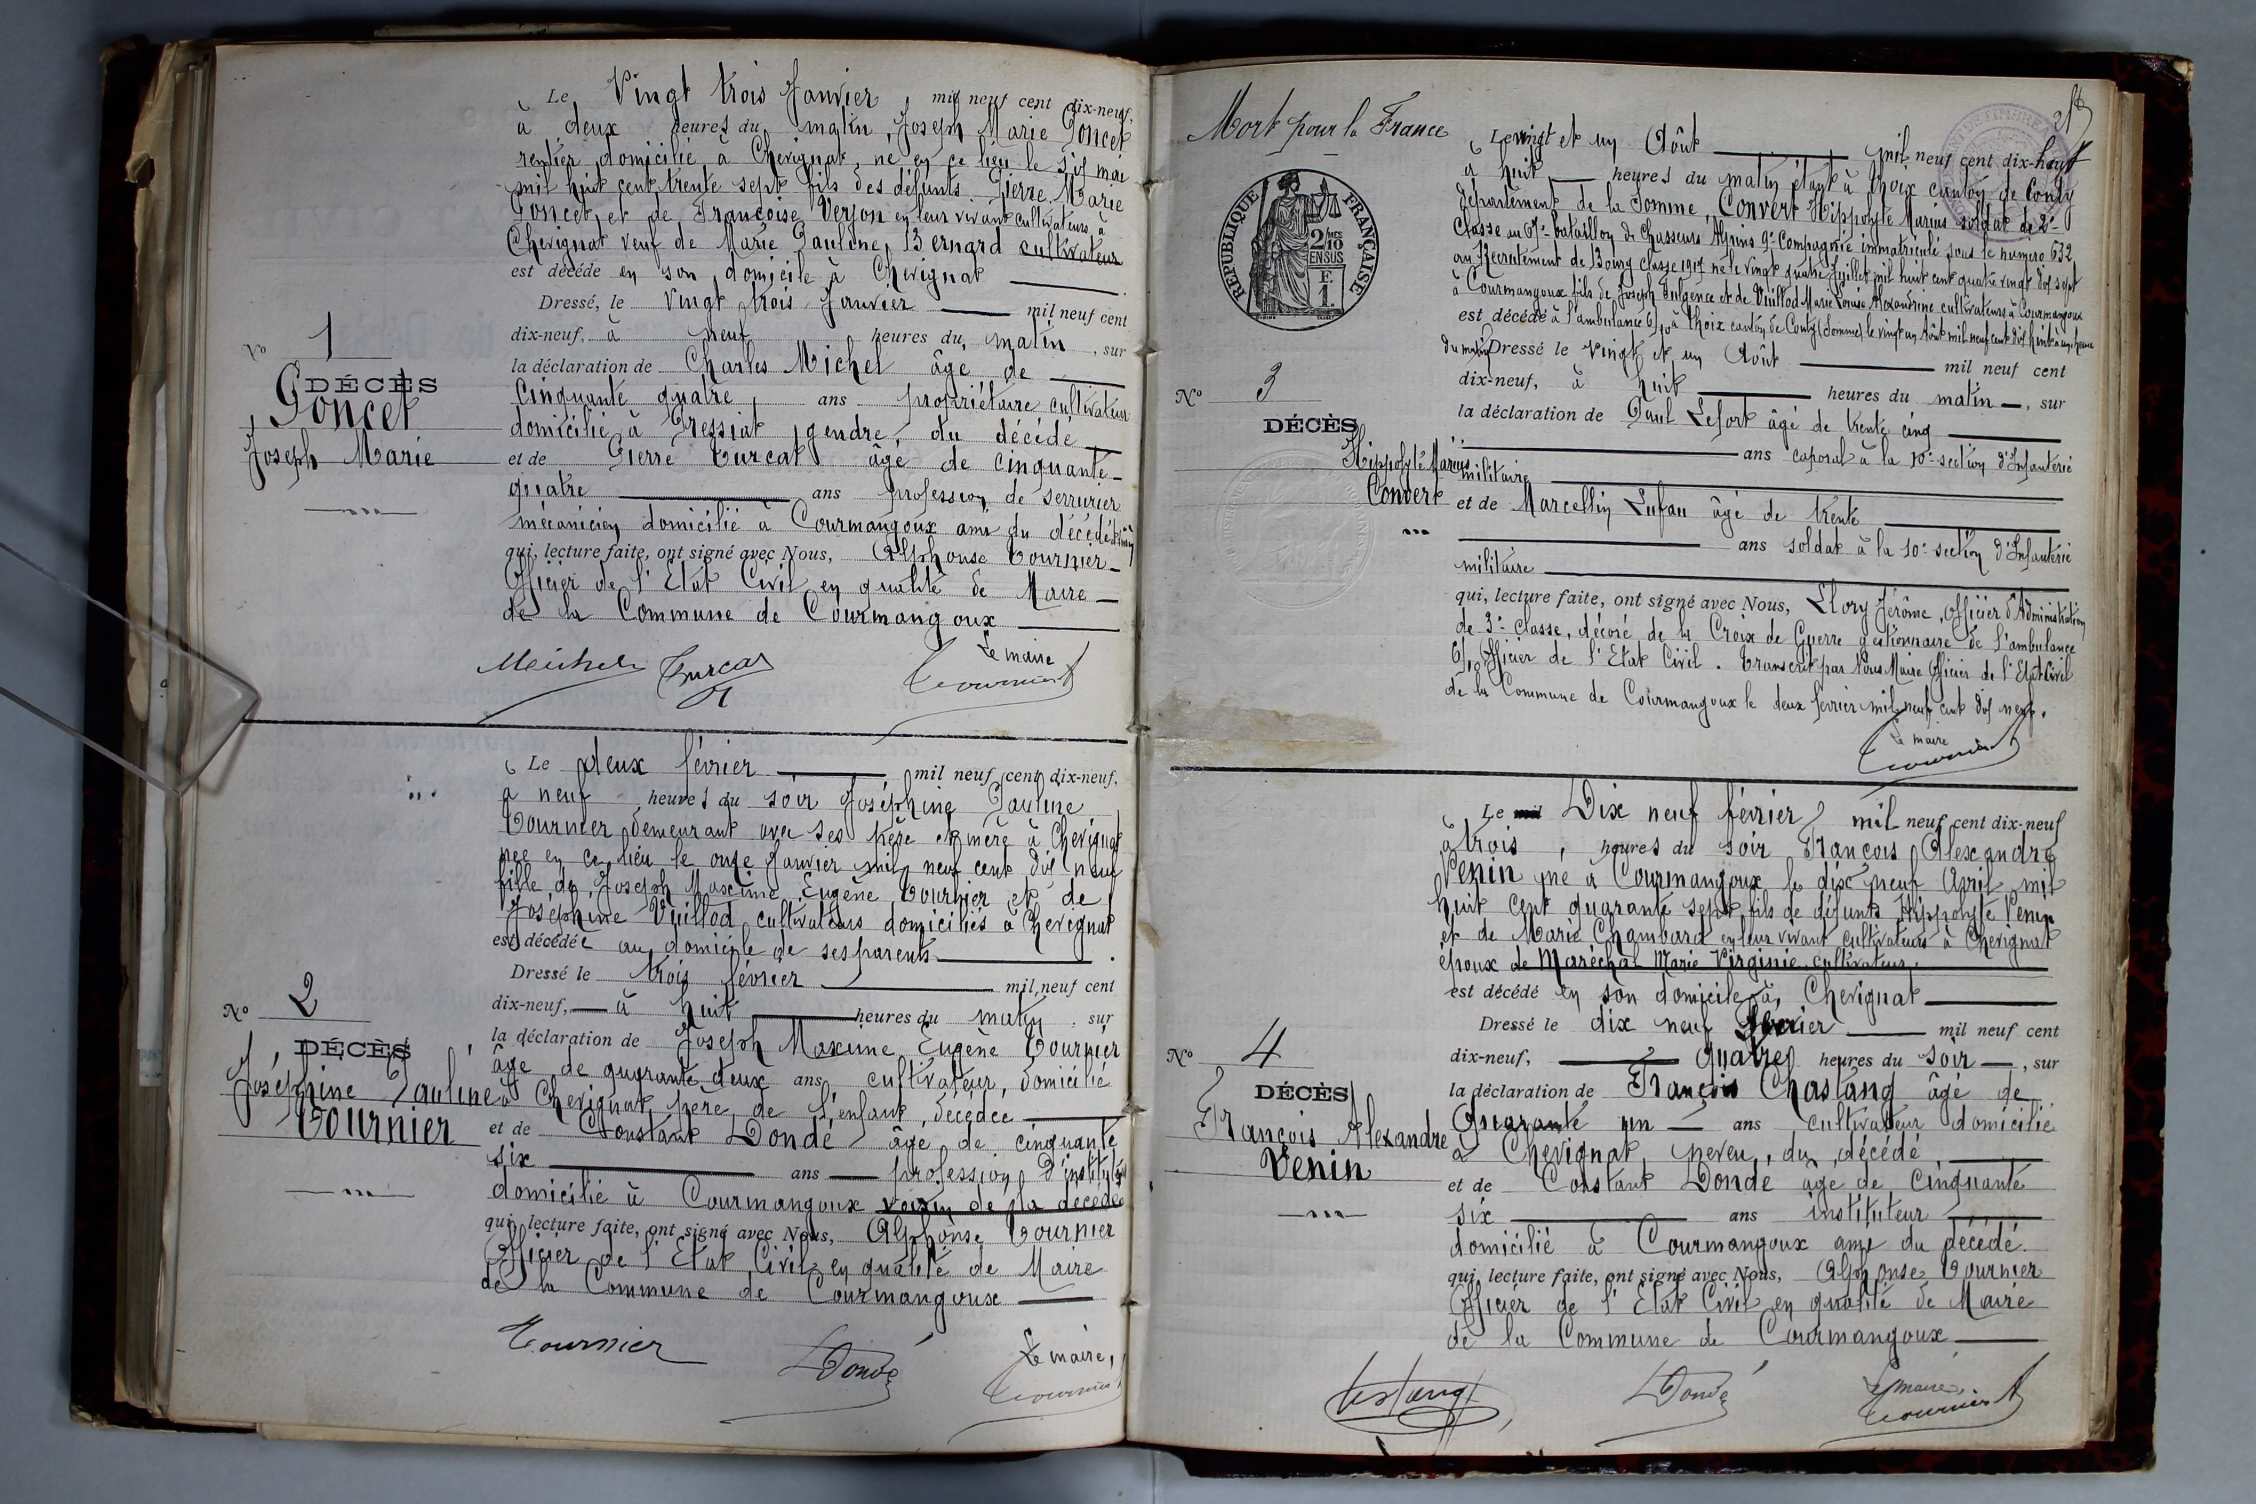 Le Vingt trois Janvier, mil neuf cent dix-neuf,
à deux heures du matin, Joseph Marie Poncet
rentier domicilié à Chevignat, né en ce lieu le six mai
mil huit cent trente sept fils des défunts Pierre Marie
Poncet et de Françoise Verjon en leur vivant cultivateurs à
Chevignat veuf de Marie Pauline Bernard cultivateur
est décédé en son domicile à Chevignat
Dressé, le vingt trois Janvier mil neuf cent
dix-neuf, à neuf heures du matin, sur
la déclaration de Charles Michel âgé de
cinquante quatre ans propriétaire cultivateur
domicilié à Pressiat gendre du décédé
et de Pierre Turcat âgé de cinquante
quatre ans profession de serrurier
mécanicien domicilié à Courmangoux ami du décédé
qui, lecture faite, ont signé avec Nous, Alphonse Tournier
Officier de l'Etat Civil en qualité de Maire
de la Commune de Courmangoux
Le maire
Michel Turcat Tournier
No 1
DÉCÈS
Poncet
Joseph Marie
Le deux février mil neuf cent dix-neuf,
à neuf heures du soir Joséphine Pauline
Tournier demeurant avec ses père et mère à Chevignat
née en ce lieu le onze Janvier mil neuf cent dix neuf
fille de Joseph Maxime Eugène Tournier et de
Joséphine Vuillod cultivateurs domiciliés à Chevignat
est décédée au domicile de ses parents
Dressé le trois février mil neuf cent
dix-neuf, à huit heures du matin sur
la déclaration de Joseph Maxime Eugène Tournier
âgé de quarante deux ans cultivateur domicilié
à Chevignat père de l'enfant décédée
et de Constant Dondé âgé de cinquante
six ans profession d'institut
domicilié à Courmangoux voisin de la décédée
qui, lecture faite, ont signé avec Nous, Alphonse Tournier
Officier de l'Etat Civil en qualité de Maire
de la Commune de Courmangoux
Le maire,
Tournier Dondé Tournier
No 2
DÉCÈS
Joséphine Pauline
Tournier
Mort pour la France
RÉPUBLIQUE FRANÇAISE
2/10
EN SUS
Le vingt et un Août mil neuf cent dix-huit
à huit heures du matin étant à Thoix canton de Conty
département de la Somme, Convert Hippolyte Marius soldat de 2e
classe au 67e bataillon de Chasseurs Alpins 9e Compagnie immatriculé sous le numéro 632
au Recrutement de Bourg classe 1917 né le vingt quatre Juillet mil huit cent quatre vingt dix sept
à Courmangoux fils de Joseph Fulgence et de Vuillod Marie Louise Alexandrine cultivateurs à Courmangoux
est décédé à l'ambulance à Thoix canton de Conty (Somme) le vingt un Août mil neuf cent dix huit à une heure
du matin Dressé le vingt et un Août mil neuf cent
dix-neuf, à huit heures du matin, sur
la déclaration de Paul Lefort âgé de trente cinq
ans caporal à la 10e section d'Infanterie
militaire
et de Marcellin Lufau âgé de trente
ans soldat à la 10e section d'Infanterie
militaire
qui, lecture faite, ont signé avec Nous, Llory Jérôme, Officier d'Administration
de 3e classe, décoré de la Croix de Guerre gestionnaire de l'ambulance
Officier de l'Etat Civil. Transcrit par Nous Maire Officier de l'Etat Civil
de la Commune de Courmangoux le deux février mil neuf cent dix neuf.
Le maire
Tournier
No 3
DÉCÈS
Hippolyte Marius
Convert
Le mil Dix neuf février mil neuf cent dix-neuf
à trois heures du soir François Alexandre
Venin né à Courmangoux le dix neuf Avril mil
huit cent quarante sept fils de défunts Hippolyte Venin
et de Marie Chambard en leur vivant cultivateurs à Chevignat
époux de Maréchal Marie Virginie cultivateur
est décédé en son domicile à Chevignat
Dressé le dix neuf février mil neuf cent
dix-neuf, quatre heures du soir, sur
la déclaration de François Chaslang âgé de
Quarante un ans cultivateur domicilié
à Chevignat neveu du décédé
et de Constant Dondé âgé de cinquante
six ans instituteur
domicilié à Courmangoux ami du décédé.
qui, lecture faite, ont signé avec Nous, Alphonse Tournier
Officier de l'Etat Civil en qualité de Maire
de la Commune de Courmangoux
Le maire,
Dondé Tournier
No 4
DÉCÈS
François Alexandre
Venin